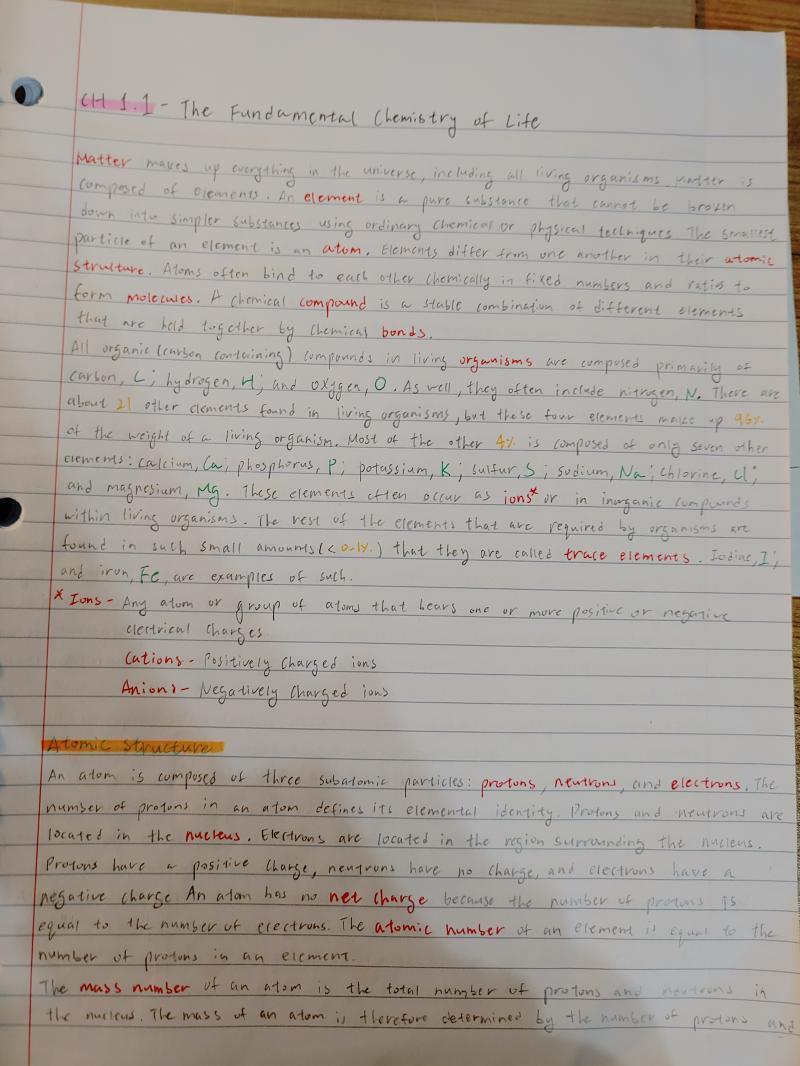 CH 1.1 - The Fundamental Chemistry of Life
Matter makes up everything in the universe, including all living organisms. Matter is
composed of elements. An element is a pure substance that cannot be broken
down into simpler substances using ordinary chemical or physical techniques. The smallest
particle of an element is an atom. Elements differ from one another in their atomic
structure. Atoms often bind to each other chemically in fixed numbers and ratios to
form molecules. A chemical compound is a stable combination of different elements
that are held together by chemical bonds.
All organic (carbon containing) compounds in living organisms are composed primarily of
carbon, C; hydrogen, H; and oxygen, O. As well, they often include nitrogen, N. There are
about 21 other elements found in living organisms, but these four elements make up 96%
of the weight of a living organism. Most of the other 4% is composed of only seven other
elements: calcium, Ca; phosphorus, P; potassium, K; sulfur, S; sodium, Na; chlorine, Cl;
and magnesium, Mg. These elements often occur as ions* or in inorganic compounds
within living organisms. The rest of the elements that are required by organisms are
found in such small amounts (< 0.1%) that they are called trace elements. Iodine, I;
and iron, Fe, are examples of such.
* Ions - Any atom or group of atoms that bears one or more positive or negative
electrical charges
Cations - Positively charged ions
Anions - Negatively charged ions
Atomic Structure
An atom is composed of three subatomic particles: protons, neutrons, and electrons. The
number of protons in an atom defines its elemental identity. Protons and neutrons are
located in the nucleus. Electrons are located in the region surrounding the nucleus.
Protons have a positive charge, neutrons have no charge, and electrons have a
negative charge. An atom has no net charge because the number of protons is
equal to the number of electrons. The atomic number of an element is equal to the
number of protons in an element.
The mass number of an atom is the total number of protons and neutrons in
the nucleus. The mass of an atom is therefore determined by the number of protons and